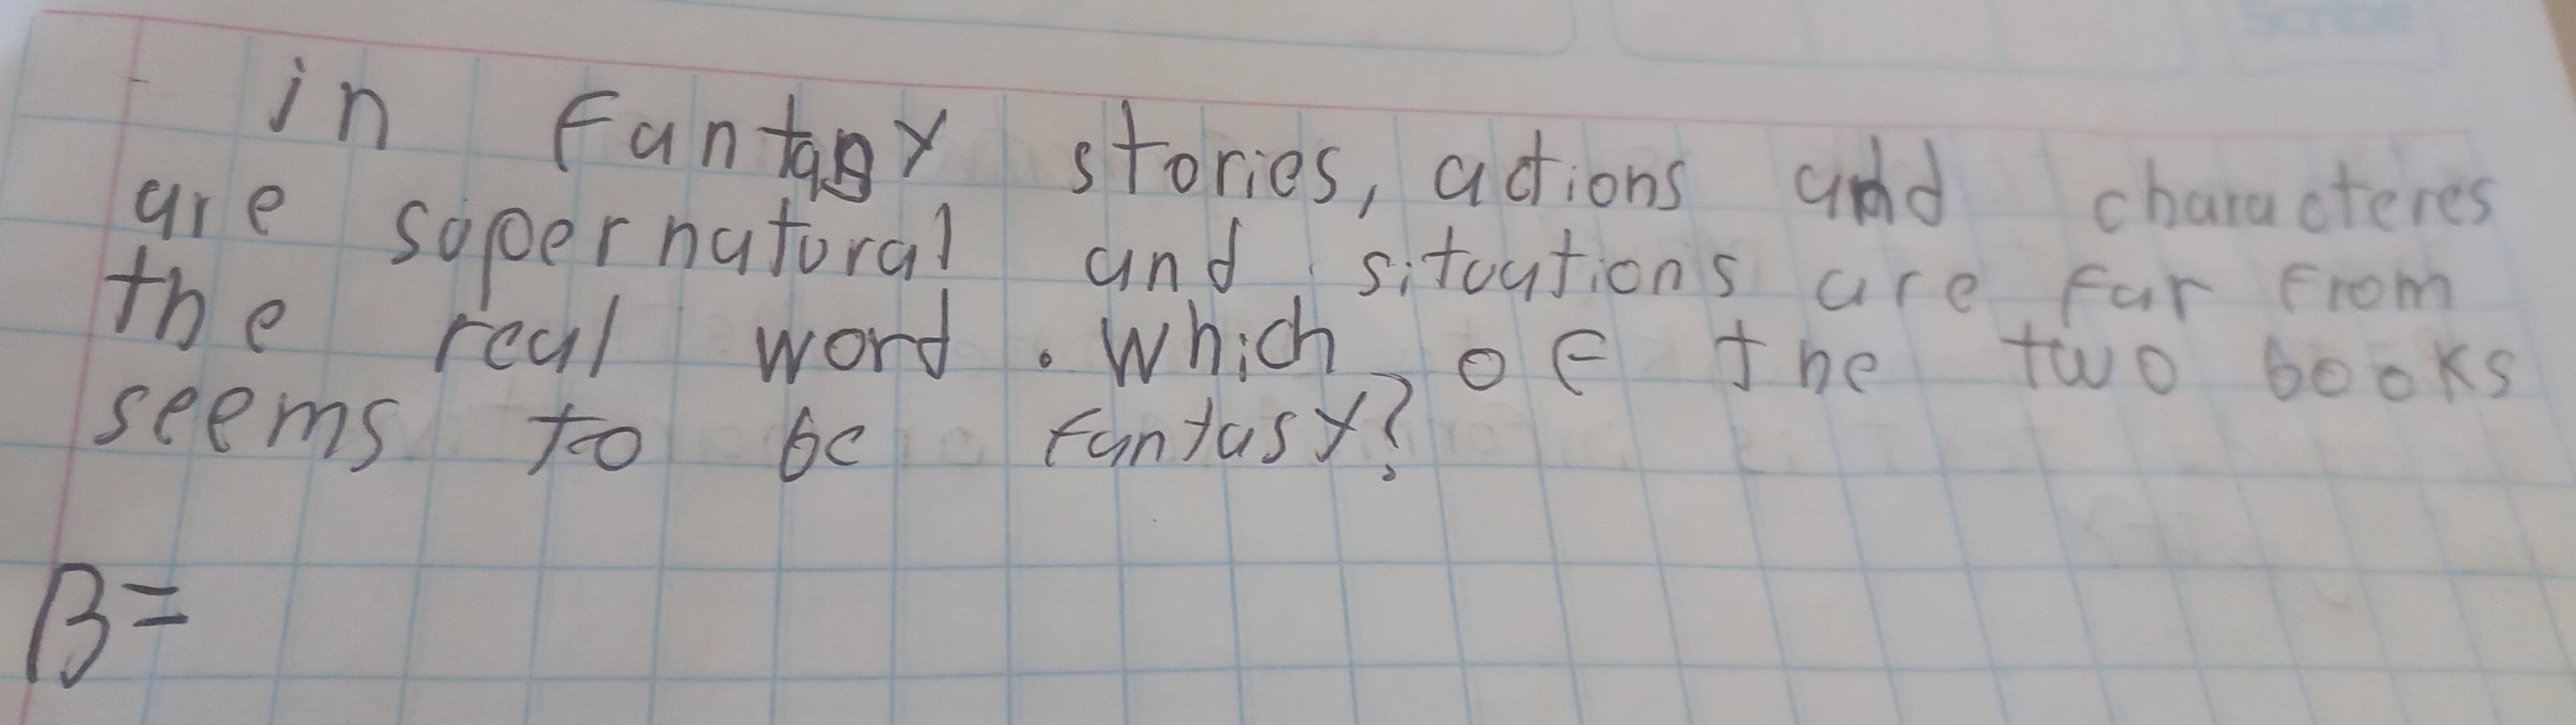 Scribe
- in fantasy stories, actions and characteres
are sopernatoral and sitoations are far from
the real word. Which of the two books
seems to be fantasy?
B=